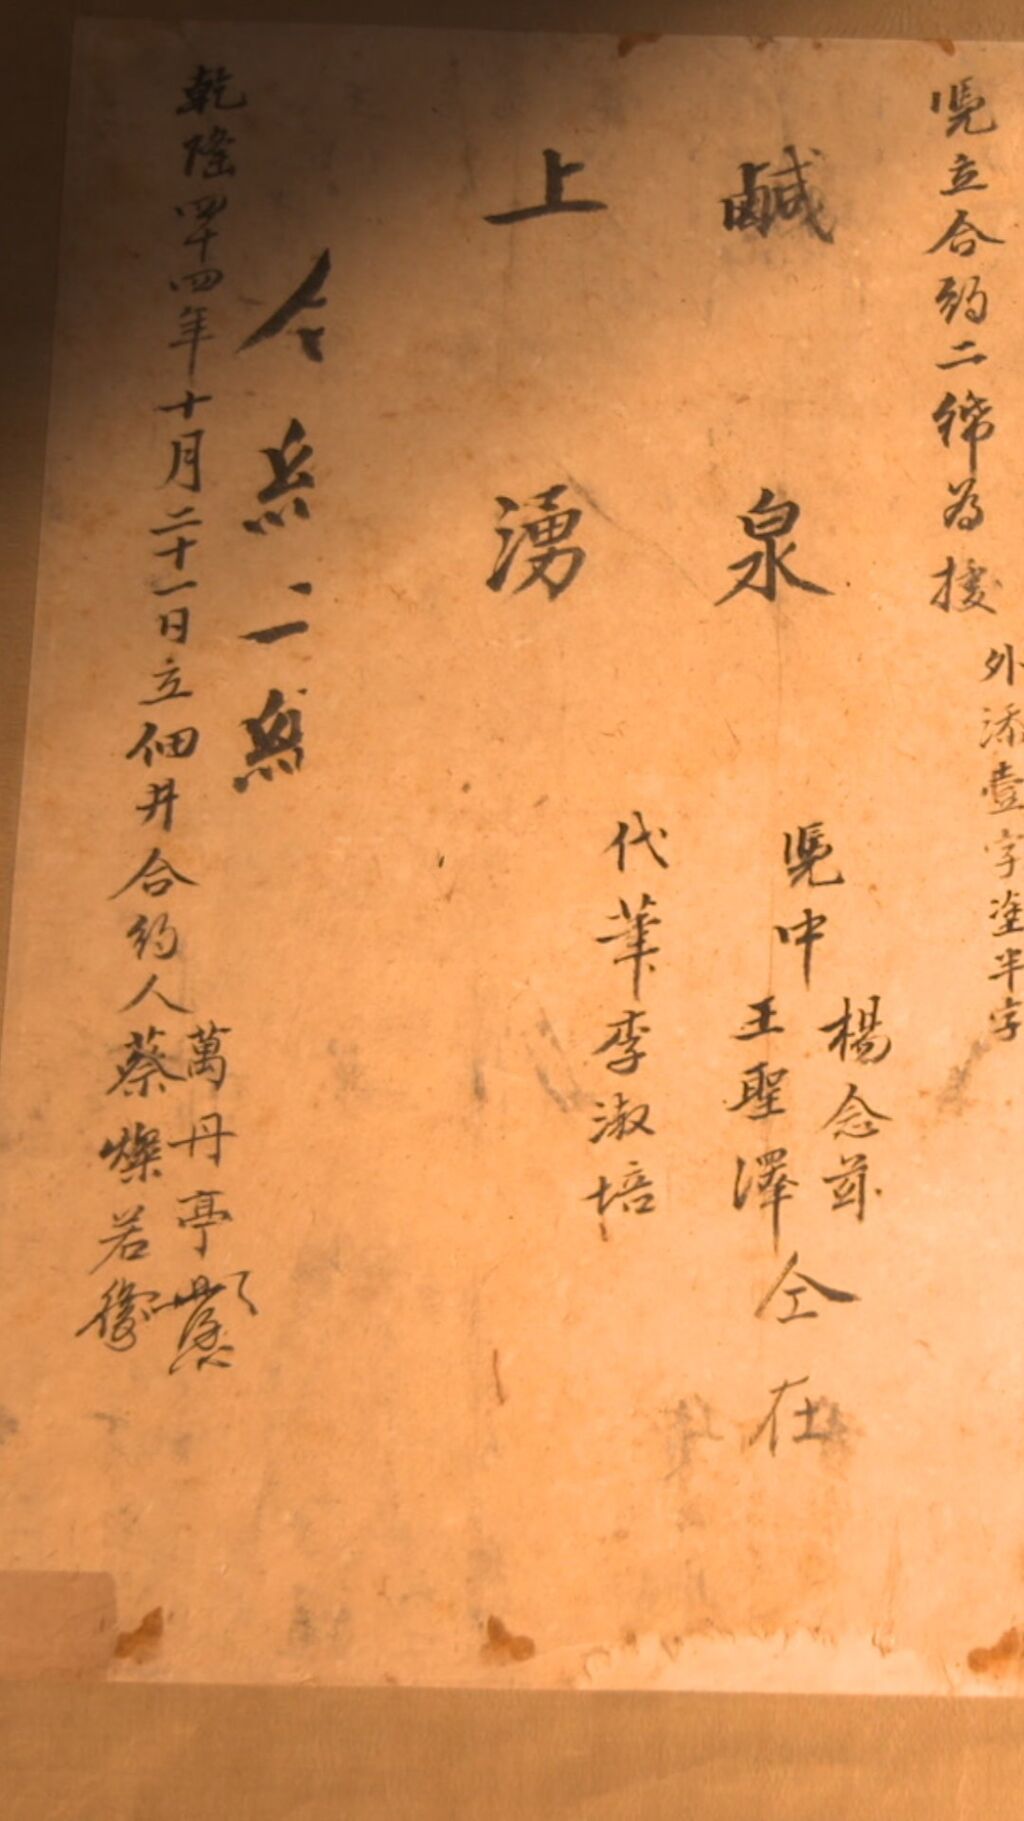 凴立合約二紙為據
外添壹字塗半字
鹹泉
上湧
凴中
楊念茲
王聖澤
仝在
代筆李淑培
乾隆四十四年十月二十一日立佃井合約人
萬丹亭
蔡燦若